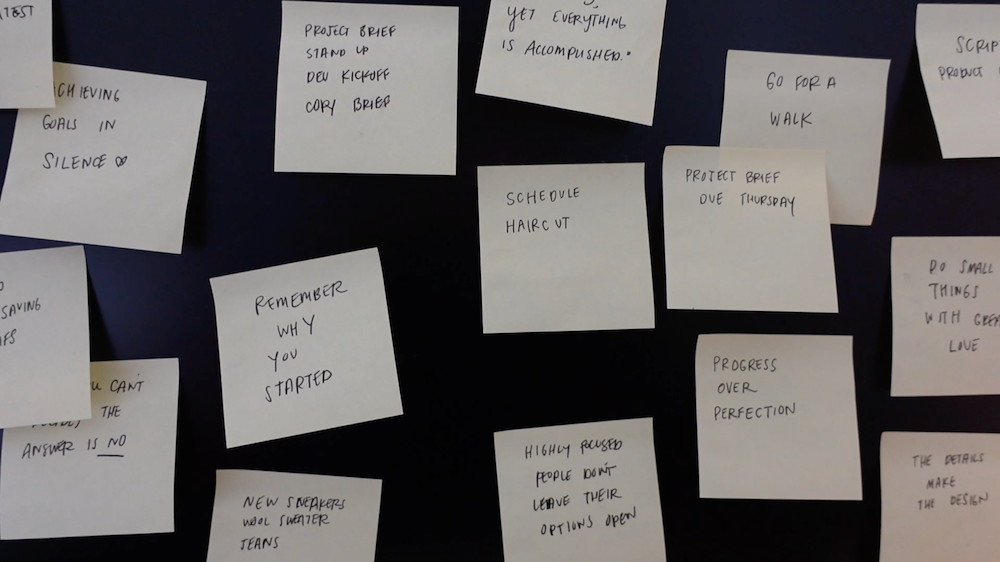 ATEST
ACHIEVING
GOALS IN
SILENCE
PROJECT BRIEF
STAND UP
DEV KICKOFF
COPY BRIEF
YET EVERYTHING
IS ACCOMPLISHED."
GO FOR A
WALK
SCRIP
PRODUCT
SCHEDULE
HAIRCUT
PROJECT BRIEF
DUE THURSDAY
SAVING
REMEMBER
WHY
YOU
STARTED
DO SMALL
THINGS
WITH GREA
LOVE
U CAN'T
THE
ANSWER IS NO
PROGRESS
OVER
PERFECTION
NEW SNEAKERS
WOOL SWEATER
JEANS
HIGHLY FOCUSED
PEOPLE DON'T
LEAVE THEIR
OPTIONS OPEN
THE DETAILS
MAKE
THE DESIGN